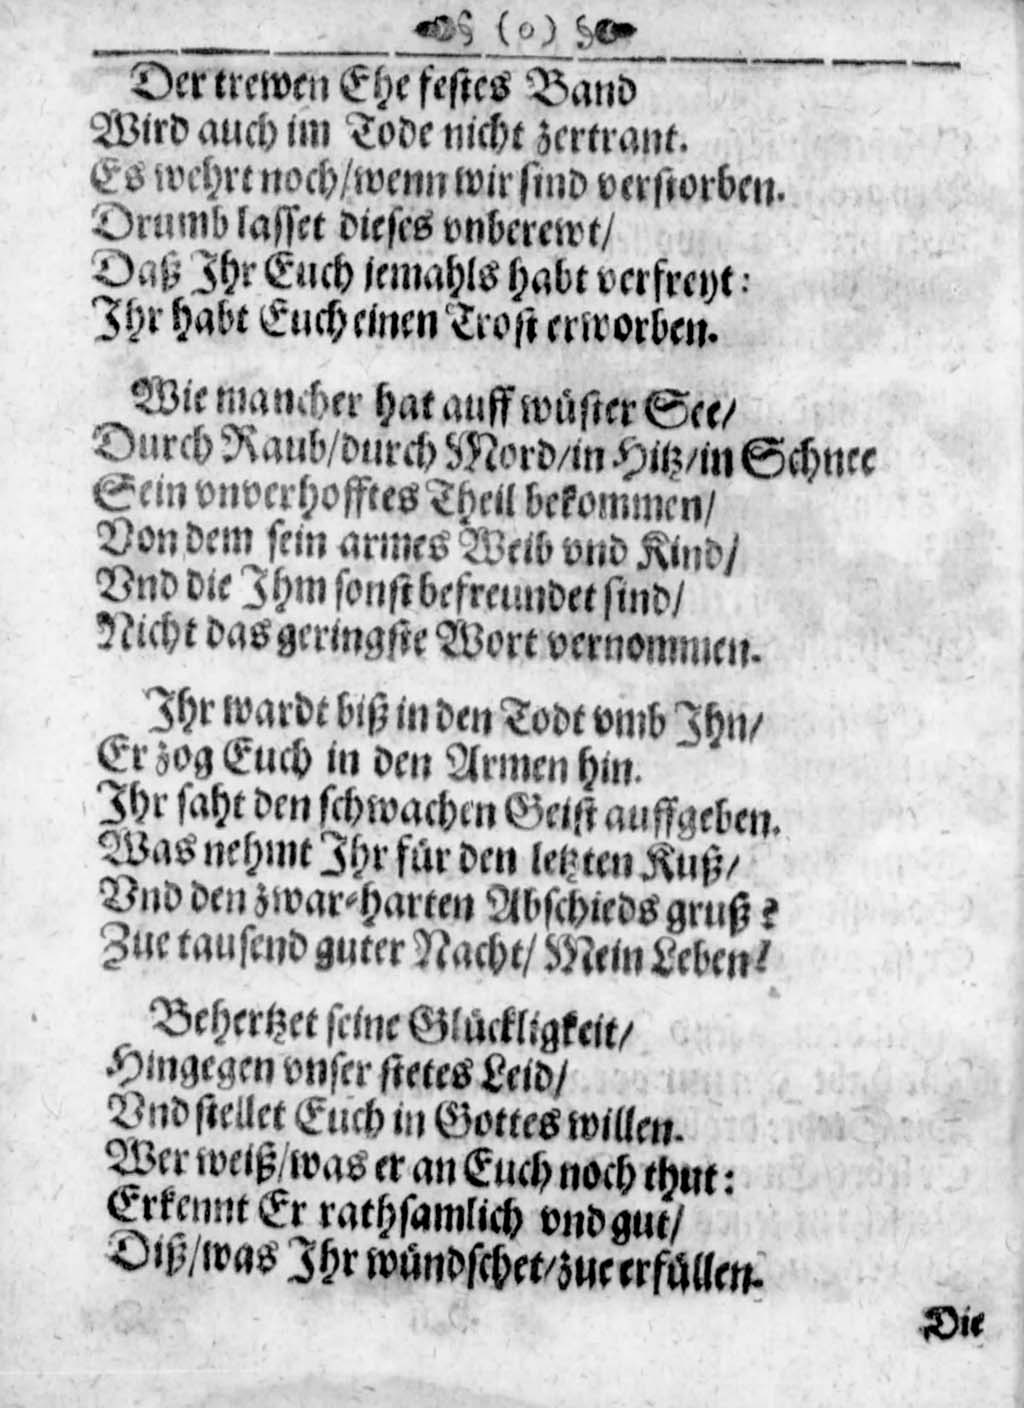 (0)
Der trewen Ehe festes Band
Wird auch im Tode nicht zertrant.
Es wehrt noch/wenn wir sind verstorben.
Drumb lasset dieses vnberewt/
Daß Ihr Euch iemahls habt verfreyt:
Ihr habt Euch einen Trost erworben.
Wie mancher hat auff wüster See/
Durch Raub/durch Mord/in Hitz/in Schnee
Sein vnverhofftes Theil bekommen/
Von dem sein armes Weib vnd Kind/
Vnd die Ihm sonst befreundet sind/
Nicht das geringste Wort vernommen.
Ihr wardt biß in den Todt vmb Ihn/
Er zog Euch in den Armen hin.
Ihr saht den schwachen Geist auffgeben.
Was nehmt Ihr für den letzten Kuß/
Vnd den zwar-harten Abschieds gruß?
Zue tausend guter Nacht/ Mein Leben!
Behertzet seine Glückligkeit/
Hingegen vnser stetes Leid/
Vnd stellet Euch in Gottes willen.
Wer weiß/was er an Euch noch thut:
Erkennt Er rathsamlich vnd gut/
Diß/was Ihr wündschet/zue erfüllen.
Die